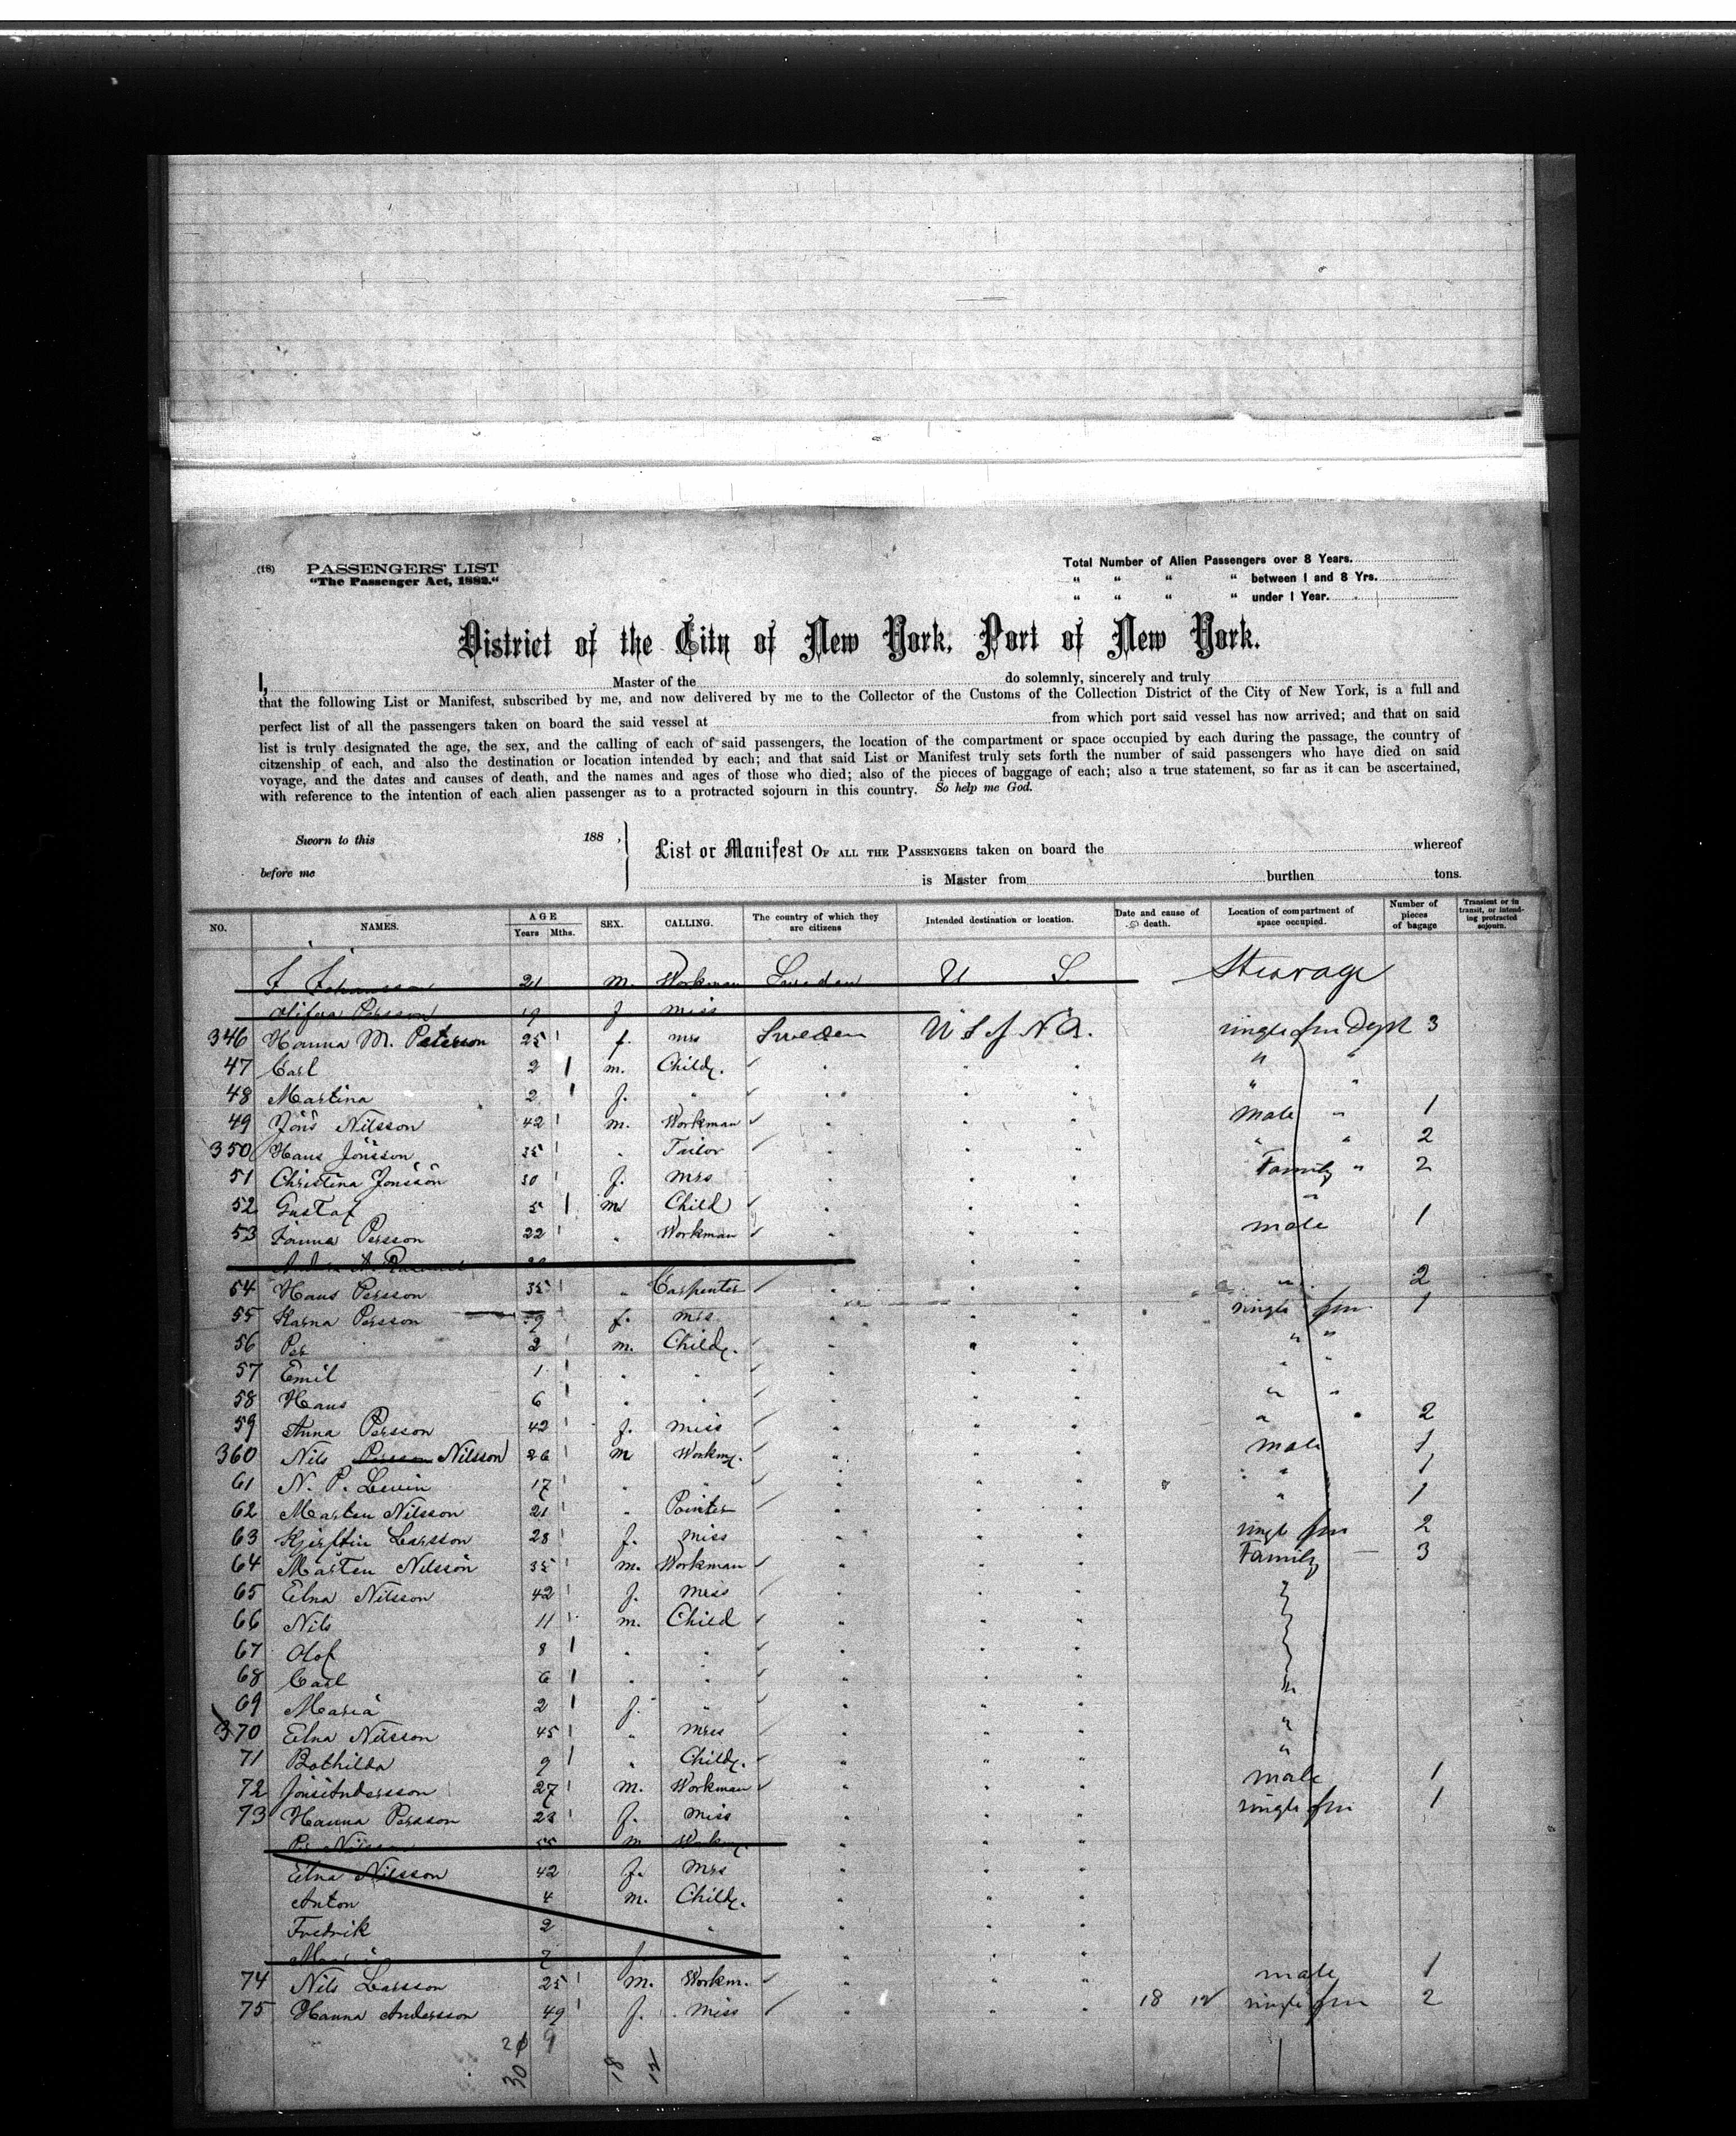 (18) PASSENGERS' LIST
"The Passenger Act, 1882."
Total Number of Alien Passengers over 8 Years.
" " " " between 1 and 8 Yrs.
" " " " under 1 Year.
District of the City of New York, Port of New York.
I, Master of the do solemnly, sincerely and truly
that the following List or Manifest, subscribed by me, and now delivered by me to the Collector of the Customs of the Collection District of the City of New York, is a full and
perfect list of all the passengers taken on board the said vessel at from which port said vessel has now arrived; and that on said
list is truly designated the age, the sex, and the calling of each of said passengers, the location of the compartment or space occupied by each during the passage, the country of
citzenship of each, and also the destination or location intended by each; and that said List or Manifest truly sets forth the number of said passengers who have died on said
voyage, and the dates and causes of death, and the names and ages of those who died; also of the pieces of baggage of each; also a true statement, so far as it can be ascertained,
with reference to the intention of each alien passenger as to a protracted sojourn in this country. So help me God.
Sworn to this 188 ,
before me
List or Manifest OF ALL THE PASSENGERS taken on board the whereof
is Master from burthen tons.
NO. NAMES. AGE Years Mths. SEX. CALLING. The country of which they are citizens Intended destination or location. Date and cause of death. Location of compartment of space occupied. Number of pieces of bagage Transient or in transit, or intending protracted sojourn.
Johansson 21 m. Workman Sweden U S. Steerage
Persson 19 f miss
346 Hanna M. Peterson 25 f. mrs Sweden U S of N A. single fm Dept 3
47 Carl 2 m. Child. " "
48 Martina 2 f. " " "
49 Jöns Nilsson 42 m. Workman male " 1
350 Hans Jönsson 35 " Tailor " " 2
51 Christina Jönsson 30 f. mrs Family " 2
52 Gustaf 5 m Child "
53 Persson 22 " Workman male 1
54 Hans Persson 35 " Carpenter " 2
55 Karna Persson f. mrs single fm 1
56 Per 2 m. Child. " "
57 Emil 1 " " " "
58 Hans 6 " " " "
59 Anna Persson 42 f. miss " " 2
360 Nils Persson Nilsson 26 m Workm. male 1
61 N. P. Levin 17 " " " 1
62 Marten Nilsson 21 " Painter " 1
63 Larsson 28 f. miss single fm 2
64 Mårten Nilsson 35 m. Workman Family 3
65 Elna Nilsson 42 f. mrss
66 Nils 11 m. Child
67 Olof 8 " "
68 Carl 6 " "
69 Maria 2 f. "
370 Elna Nilsson 45 " mrss "
71 Bothilda 9 " Child. "
72 Jöns Andersson 27 m. Workman male 1
73 Hanna Persson 23 f. miss single fm 1
Per Nilsson 55 m Workm.
Elna Nilsson 42 f. mrs
Anton 4 m. Child.
Fredrik 2 "
2 f
74 Nils Larsson 25 m. Workm. male 1
75 Hanna Andersson 49 f. miss 18 12 single fm 2
9
30 18 12